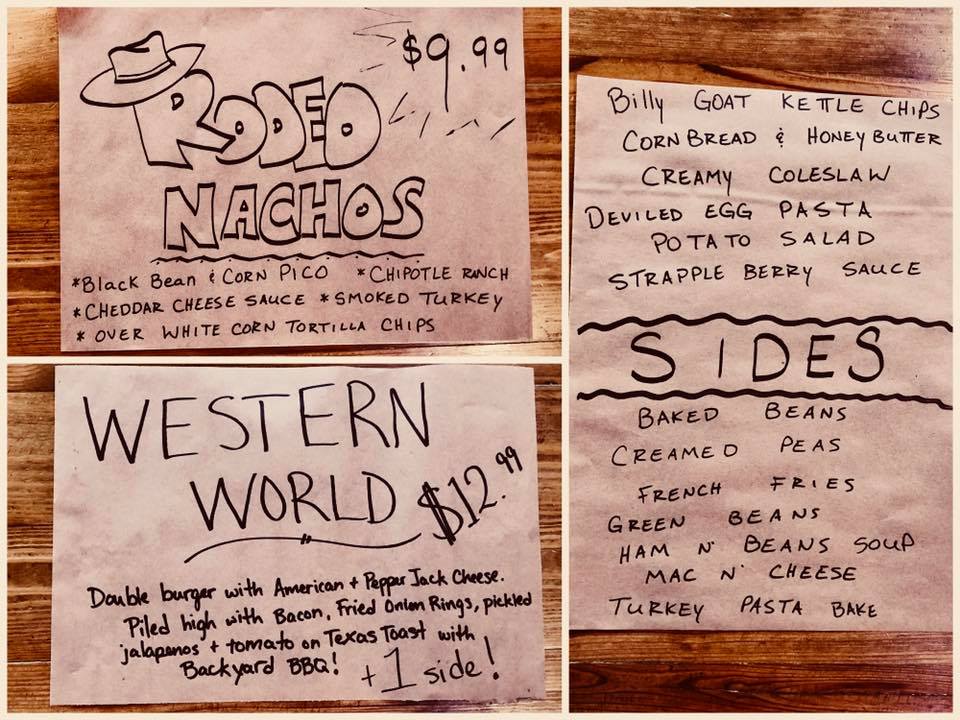 $9.99
RODEO
NACHOS
*Black Bean & CORN PICO *CHIPOTLE RANCH
*CHEDDAR CHEESE SAUCE *SMOKED TURKEY
* OVER WHITE CORN TORTILLA CHIPS
WESTERN
WORLD $12.99
Double burger with American + Pepper Jack Cheese.
Piled high with Bacon, Fried Onion Rings, pickled
jalapenos + tomato on Texas Toast with
Backyard BBQ! +1 side!
Billy GOAT KETTLE CHIPS
CORN BREAD & HONEY BUTTER
CREAMY COLESLAW
DEVILED EGG PASTA
POTATO SALAD
STRAPPLE BERRY SAUCE
SIDES
BAKED BEANS
CREAMED PEAS
FRENCH FRIES
GREEN BEANS
HAM N' BEANS SOUP
MAC N' CHEESE
TURKEY PASTA BAKE